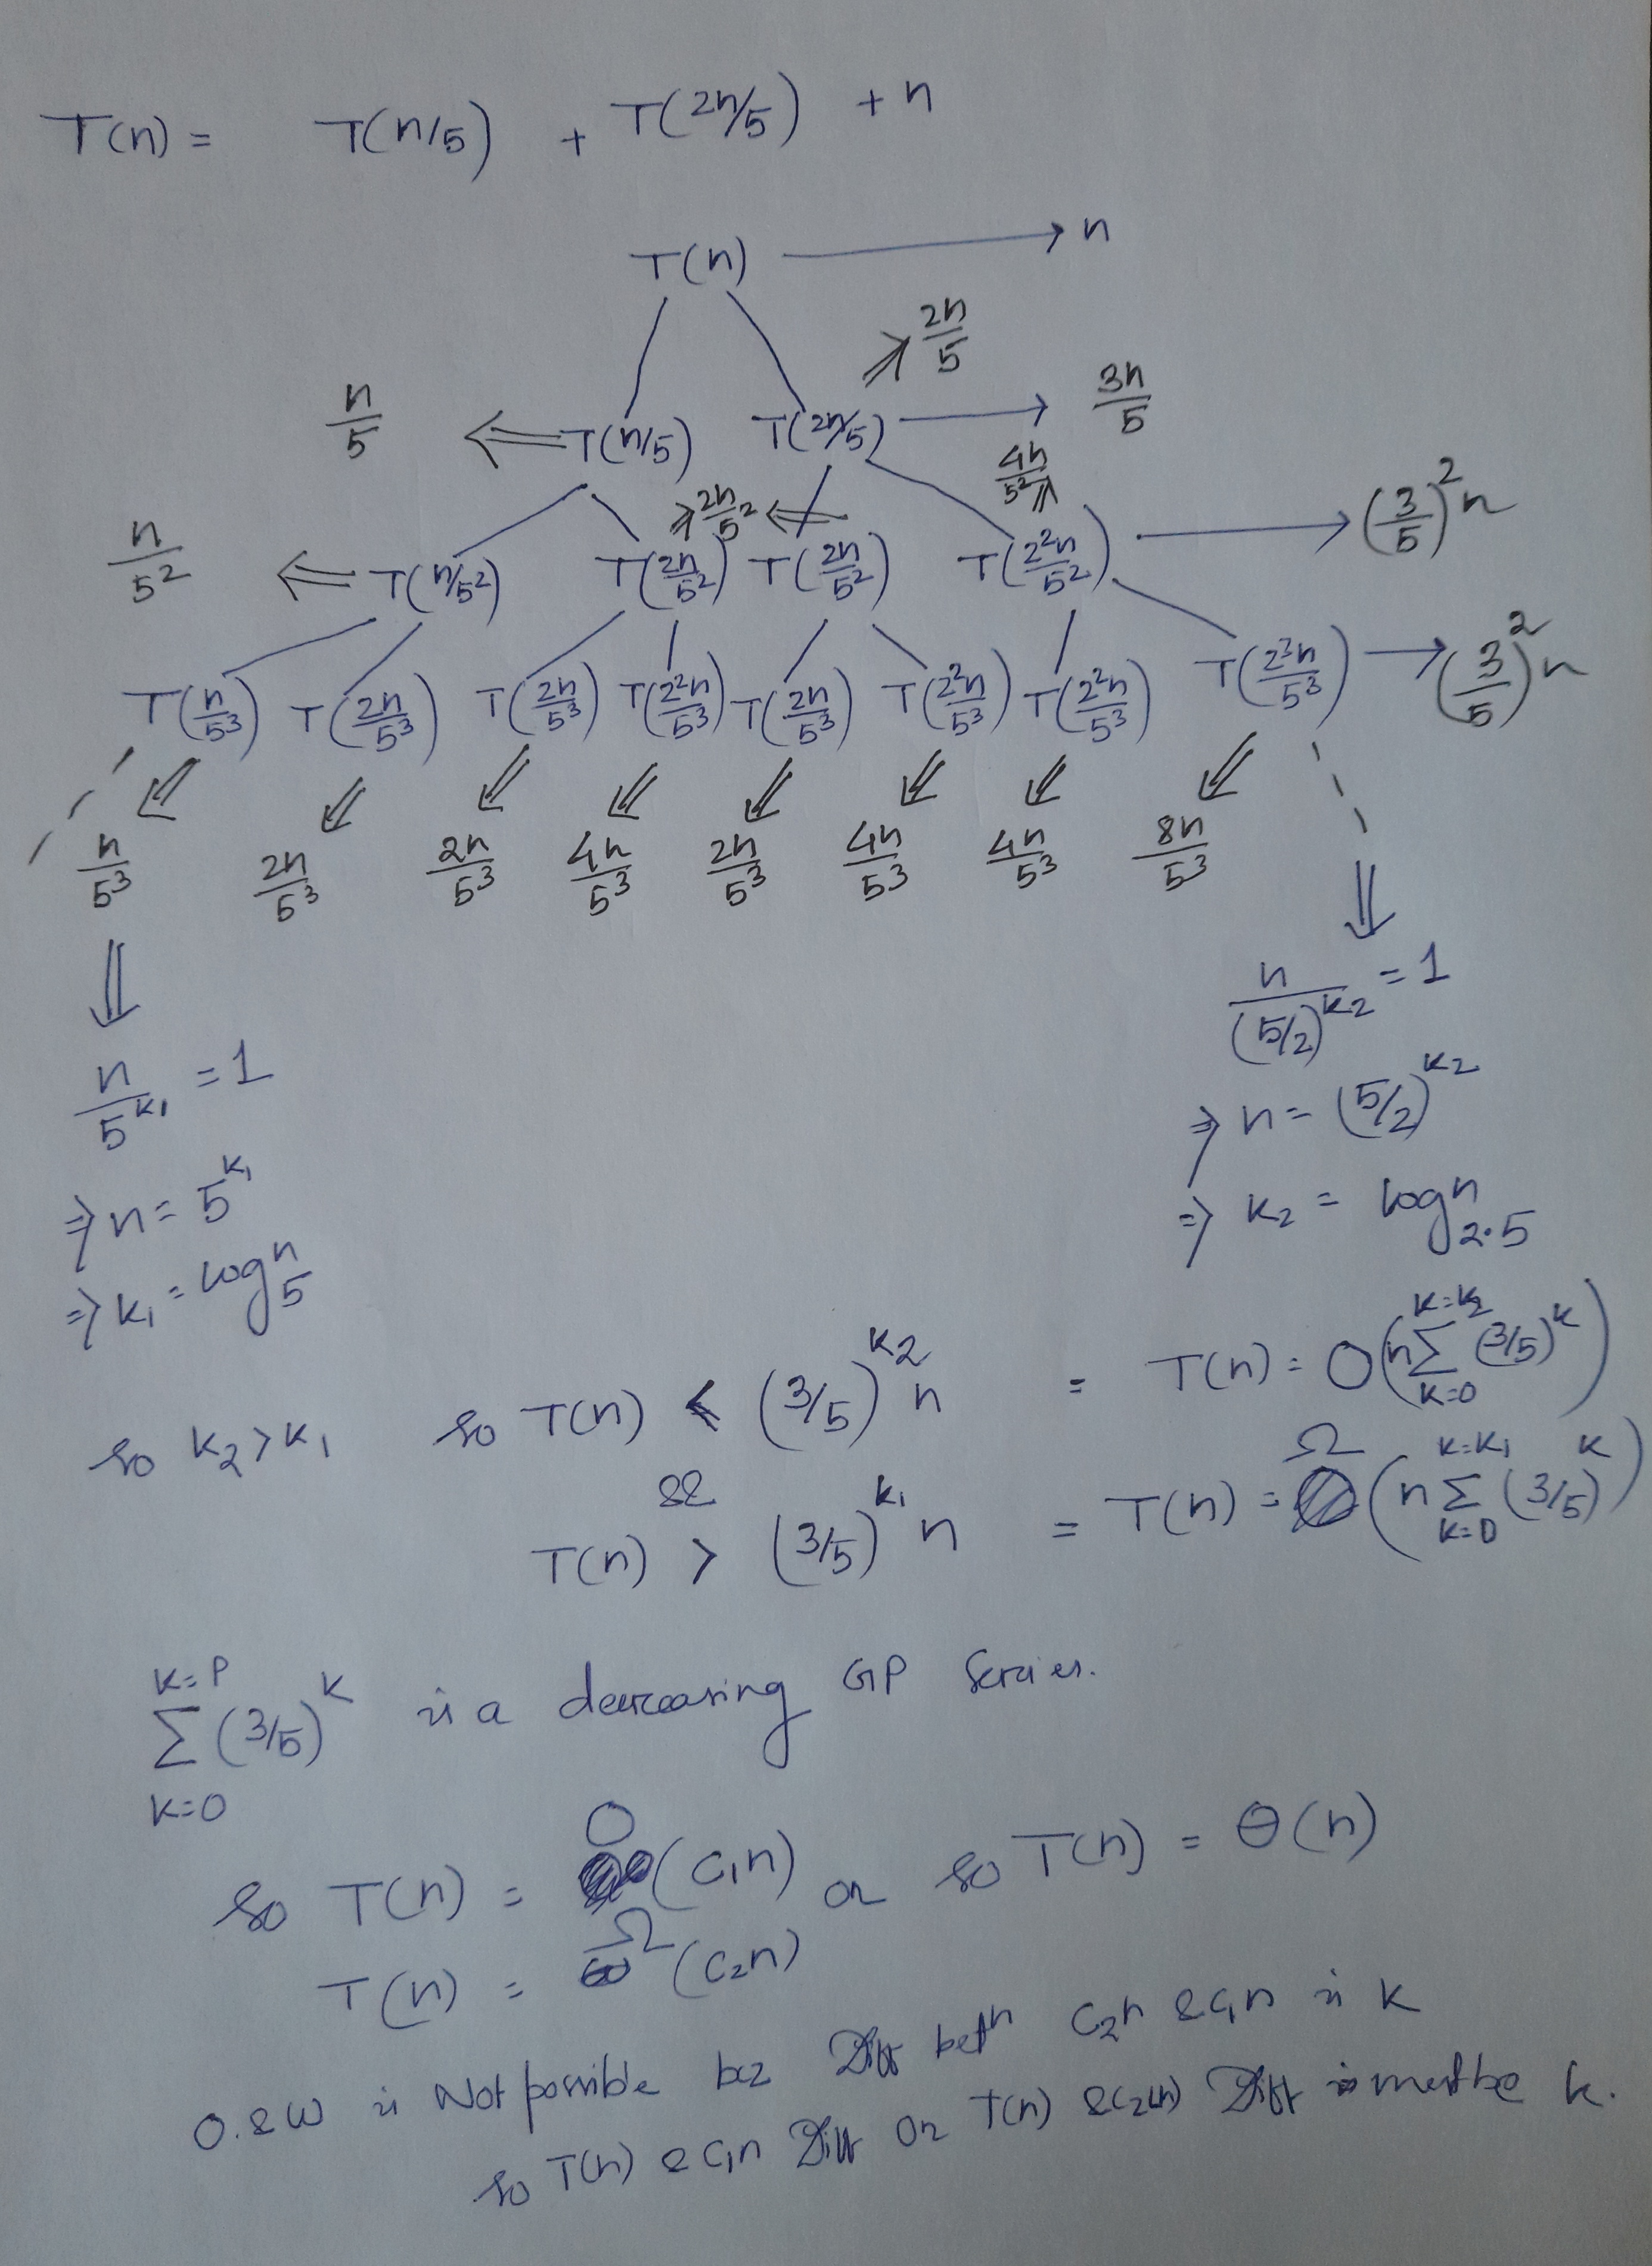 T(n) = T(n/5) + T(2n/5) + n
T(n) → n
2n/5
n/5 ⇐ T(n/5) T(2n/5) → 3n/5
2n/5² ⇐ 4n/5²
n/5² ⇐ T(n/5²) T(2n/5²) T(2n/5²) T(2²n/5²) → (3/5)²n
T(n/5³) T(2n/5³) T(2n/5³) T(2²n/5³) T(2n/5³) T(2²n/5³) T(2²n/5³) T(2³n/5³) → (3/5)²n
n/5³ 2n/5³ 2n/5³ 4n/5³ 2n/5³ 4n/5³ 4n/5³ 8n/5³
n/5^k₁ = 1
⇒ n = 5^k₁
⇒ k₁ = log₅ n
n/(5/2)^k₂ = 1
⇒ n = (5/2)^k₂
⇒ k₂ = log₂.₅ n
so k₂ > k₁ so T(n) < (3/5)^k₂ n = T(n) = O(n Σ_{k=0}^{k=k₂} (3/5)^k)
&
T(n) > (3/5)^k₁ n = T(n) = Ω(n Σ_{k=0}^{k=k₁} (3/5)^k)
Σ_{k=0}^{k=P} (3/5)^k is a decreasing GP Series.
so T(n) = O(c₁n) or so T(n) = Θ(n)
T(n) = Ω(c₂n)
O & ω is Not possible bcz Diff betn c₂n & c₁n is k
so T(n) & c₁n Diff or T(n) & c₂(n) Diff must be k.